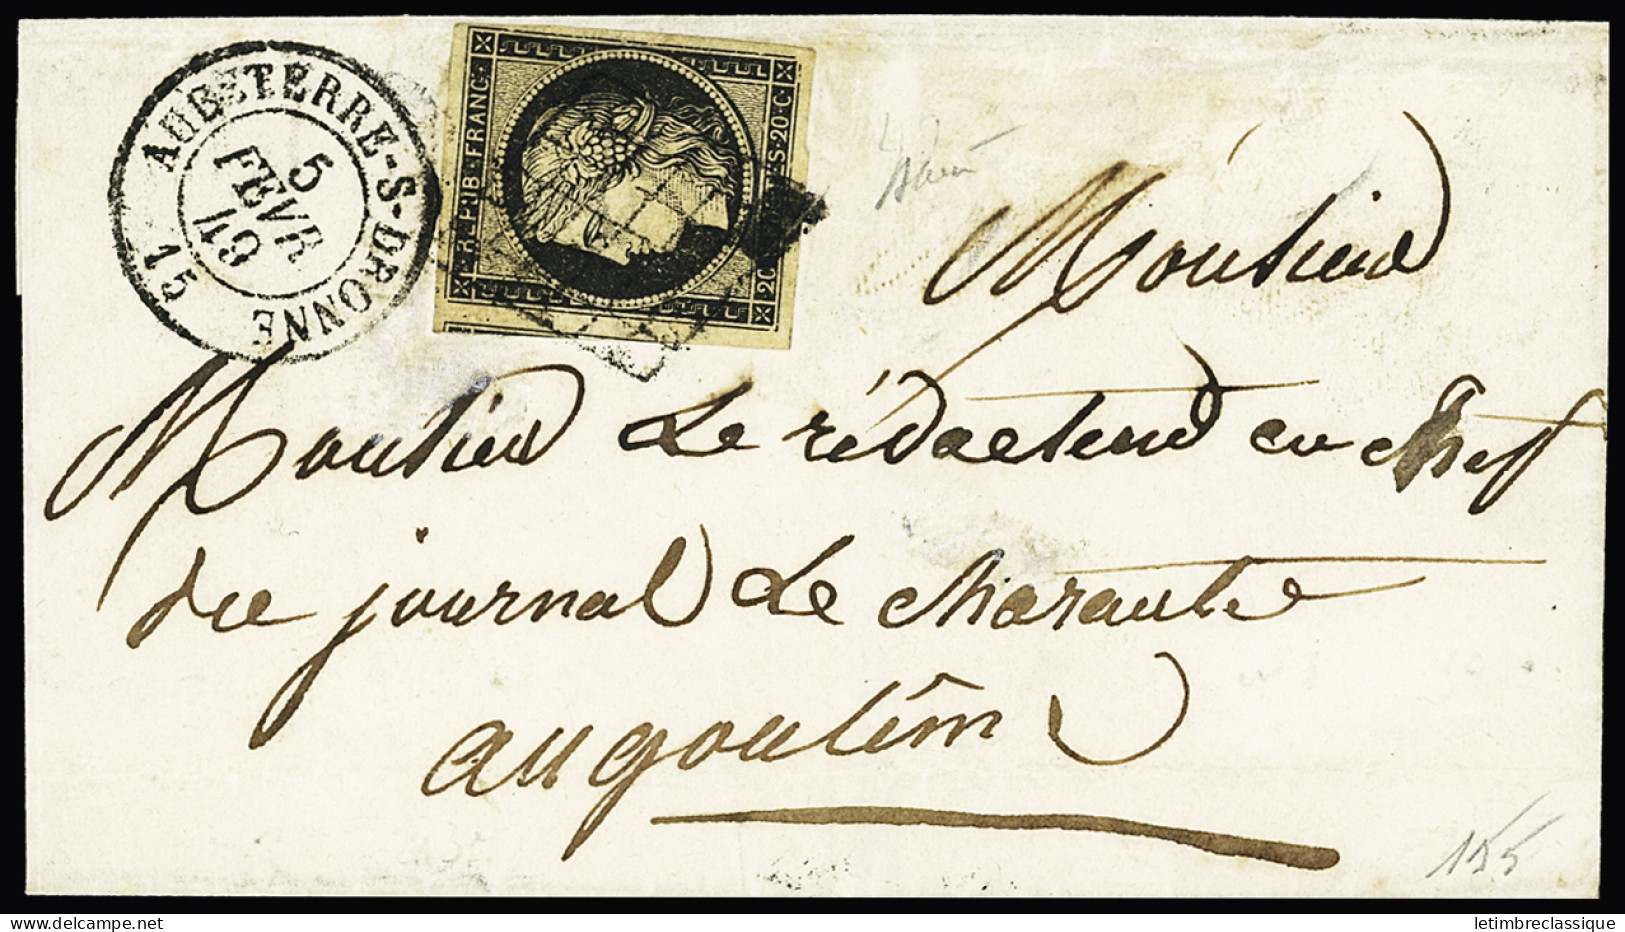 AUBETERRE-S-DRONNE
15
5
FEVR
49
REPUB. FRANC.
20 C. POSTES. 20 C.
Monsieur
Monsieur Le rédacteur en chef
du journal Le charante
angoulêm
155
delcampe.net
letimbreclassique